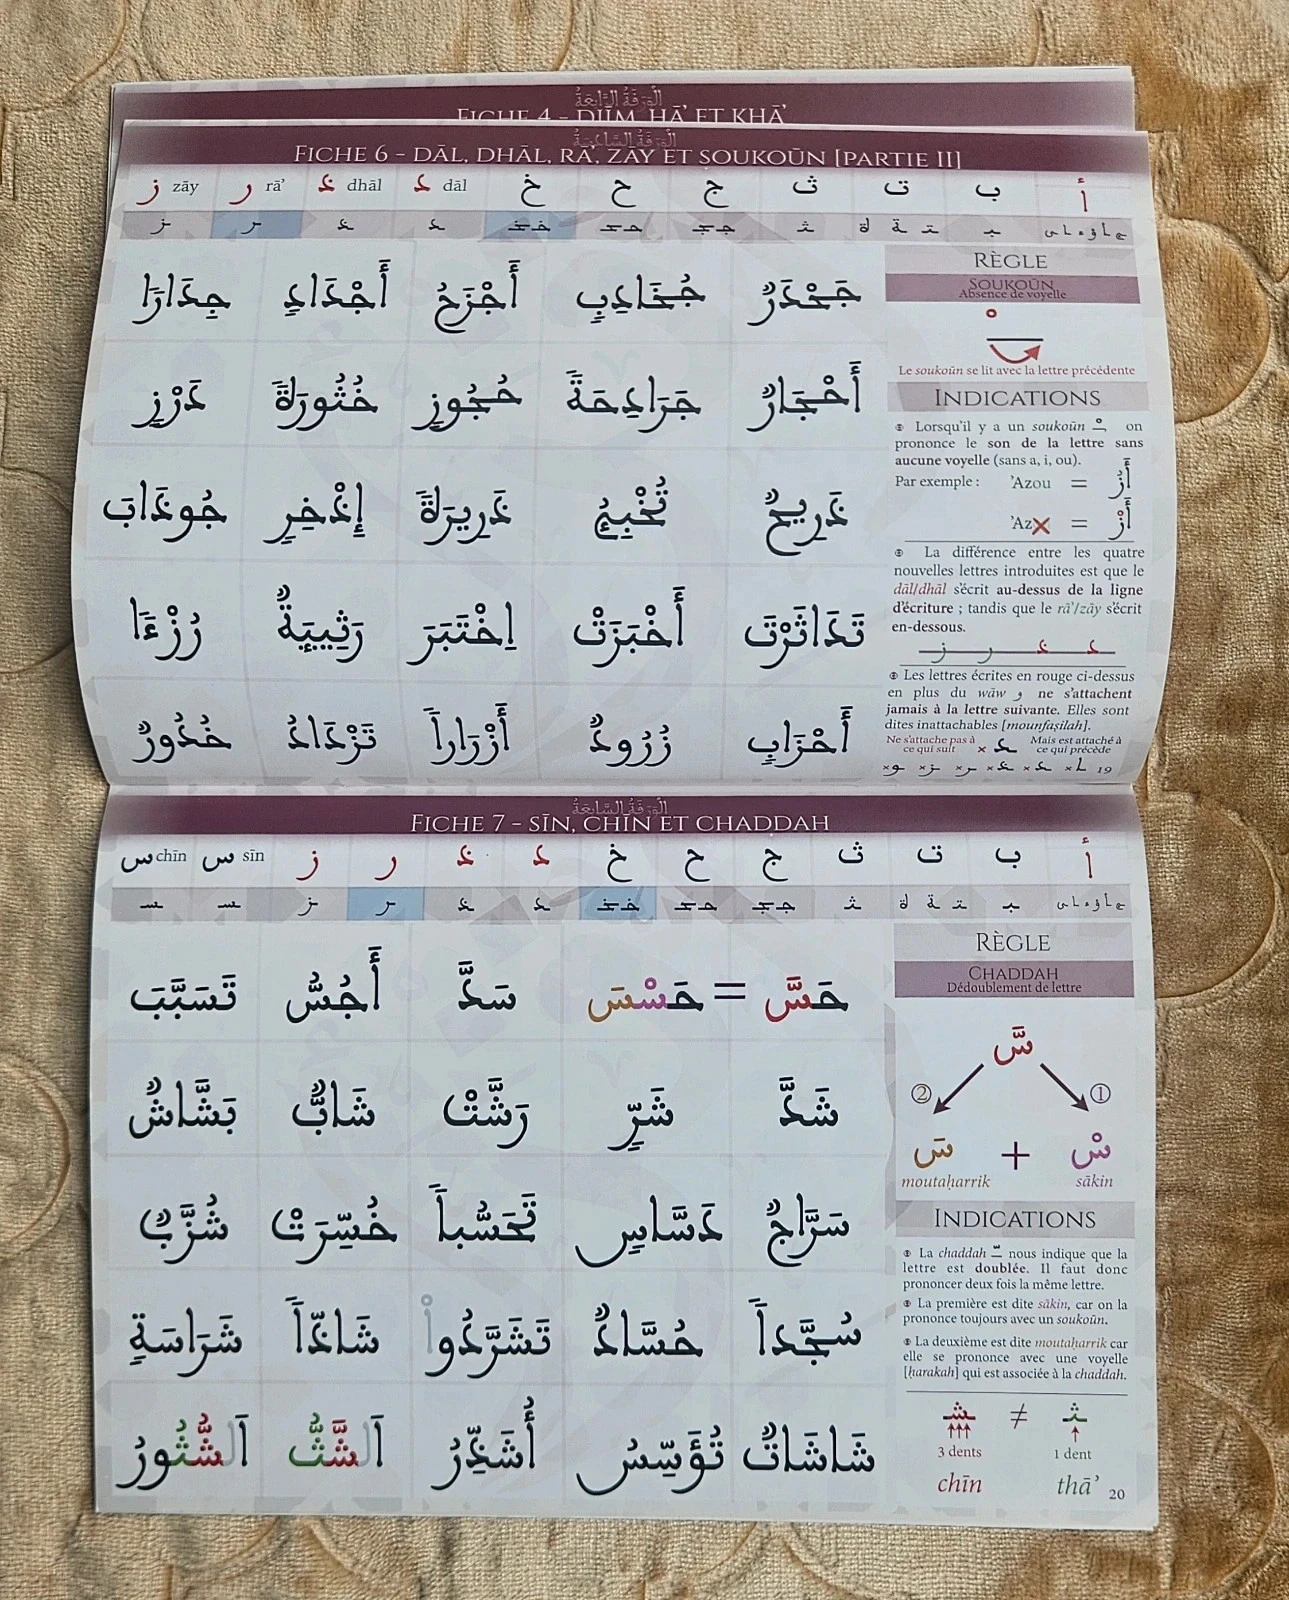 الورقة الرابعة
FICHE 4 - DJĪM, ḤĀ' ET KHĀ'
الورقة السادسة
FICHE 6 - DĀL, DHĀL, RĀ', ZĀY ET SOUKOŪN [PARTIE II]
أ ب ت ث ج ح خ د dāl ذ dhāl ر rā' ز zāy
RÈGLE
SOUKOŪN
Absence de voyelle
Le soukoūn se lit avec la lettre précédente
INDICATIONS
Lorsqu'il y a un soukoūn ـْ on
prononce le son de la lettre sans
aucune voyelle (sans a, i, ou).
Par exemple : 'Azou = أَزُ
'Az✗ = أَزْ
La différence entre les quatre
nouvelles lettres introduites est que le
dāl/dhāl s'écrit au-dessus de la ligne
d'écriture ; tandis que le rā'/zāy s'écrit
en-dessous.
Les lettres écrites en rouge ci-dessus
en plus du wāw و ne s'attachent
jamais à la lettre suivante. Elles sont
dites inattachables [mounfaṣilah].
Ne s'attache pas à
ce qui suit
Mais est attaché à
ce qui précède
19
جَحْدَرٌ جُخَادِبٍ أَجْزَحُ أَجْدَادِ جِدَارًا
أَحْجَارٌ جَرَادِحَةً حُجُوزٍ خُثُورَةً دَرْزٍ
ذَرِيحٌ ذَرِيرَةً إِذْخِرٍ جُوذَابَ
تَدَاثَرْتَ أَخْبَرَتْ اِخْتَبَرَ رَثِيِيَةٌ رُزْءَا
أَحْزَابٍ زُرُودٌ أَزْرَاراً تَزْدَادُ خُدُورٌ
الورقة السابعة
FICHE 7 - SĪN, CHĪN ET CHADDAH
أ ب ت ث ج ح خ د ذ ر ز س sīn س chīn
RÈGLE
CHADDAH
Dédoublement de lettre
سَّ
② ①
سَ + سْ
moutaḥarrik sākin
INDICATIONS
La chaddah ـّ nous indique que la
lettre est doublée. Il faut donc
prononcer deux fois la même lettre.
La première est dite sākin, car on la
prononce toujours avec un soukoūn.
La deuxième est dite moutaḥarrik car
elle se prononce avec une voyelle
[ḥarakah] qui est associée à la chaddah.
ـشـ ≠ ـثـ
3 dents 1 dent
chīn thā'
20
حَسَّ = حَسْسَ سَدَّ أَجُسُّ تَسَبَّبَ
شَدَّ شَرِّ رَشَّتْ شَابٌّ بَشَّاشٌ
سَرَّاجٌ دَسَّاسٍ تَحَسُّباً خُسِّرَتْ شُزَّبٌ
سُجَّداً حُسَّادٌ تَشَرَّدُوا شَاذّاً شَرَاسَةٍ
شَاشَاتٌ تُؤَسِّسُ أُشَذِّرُ اَلشَّثُّ اَلشُّثُورُ